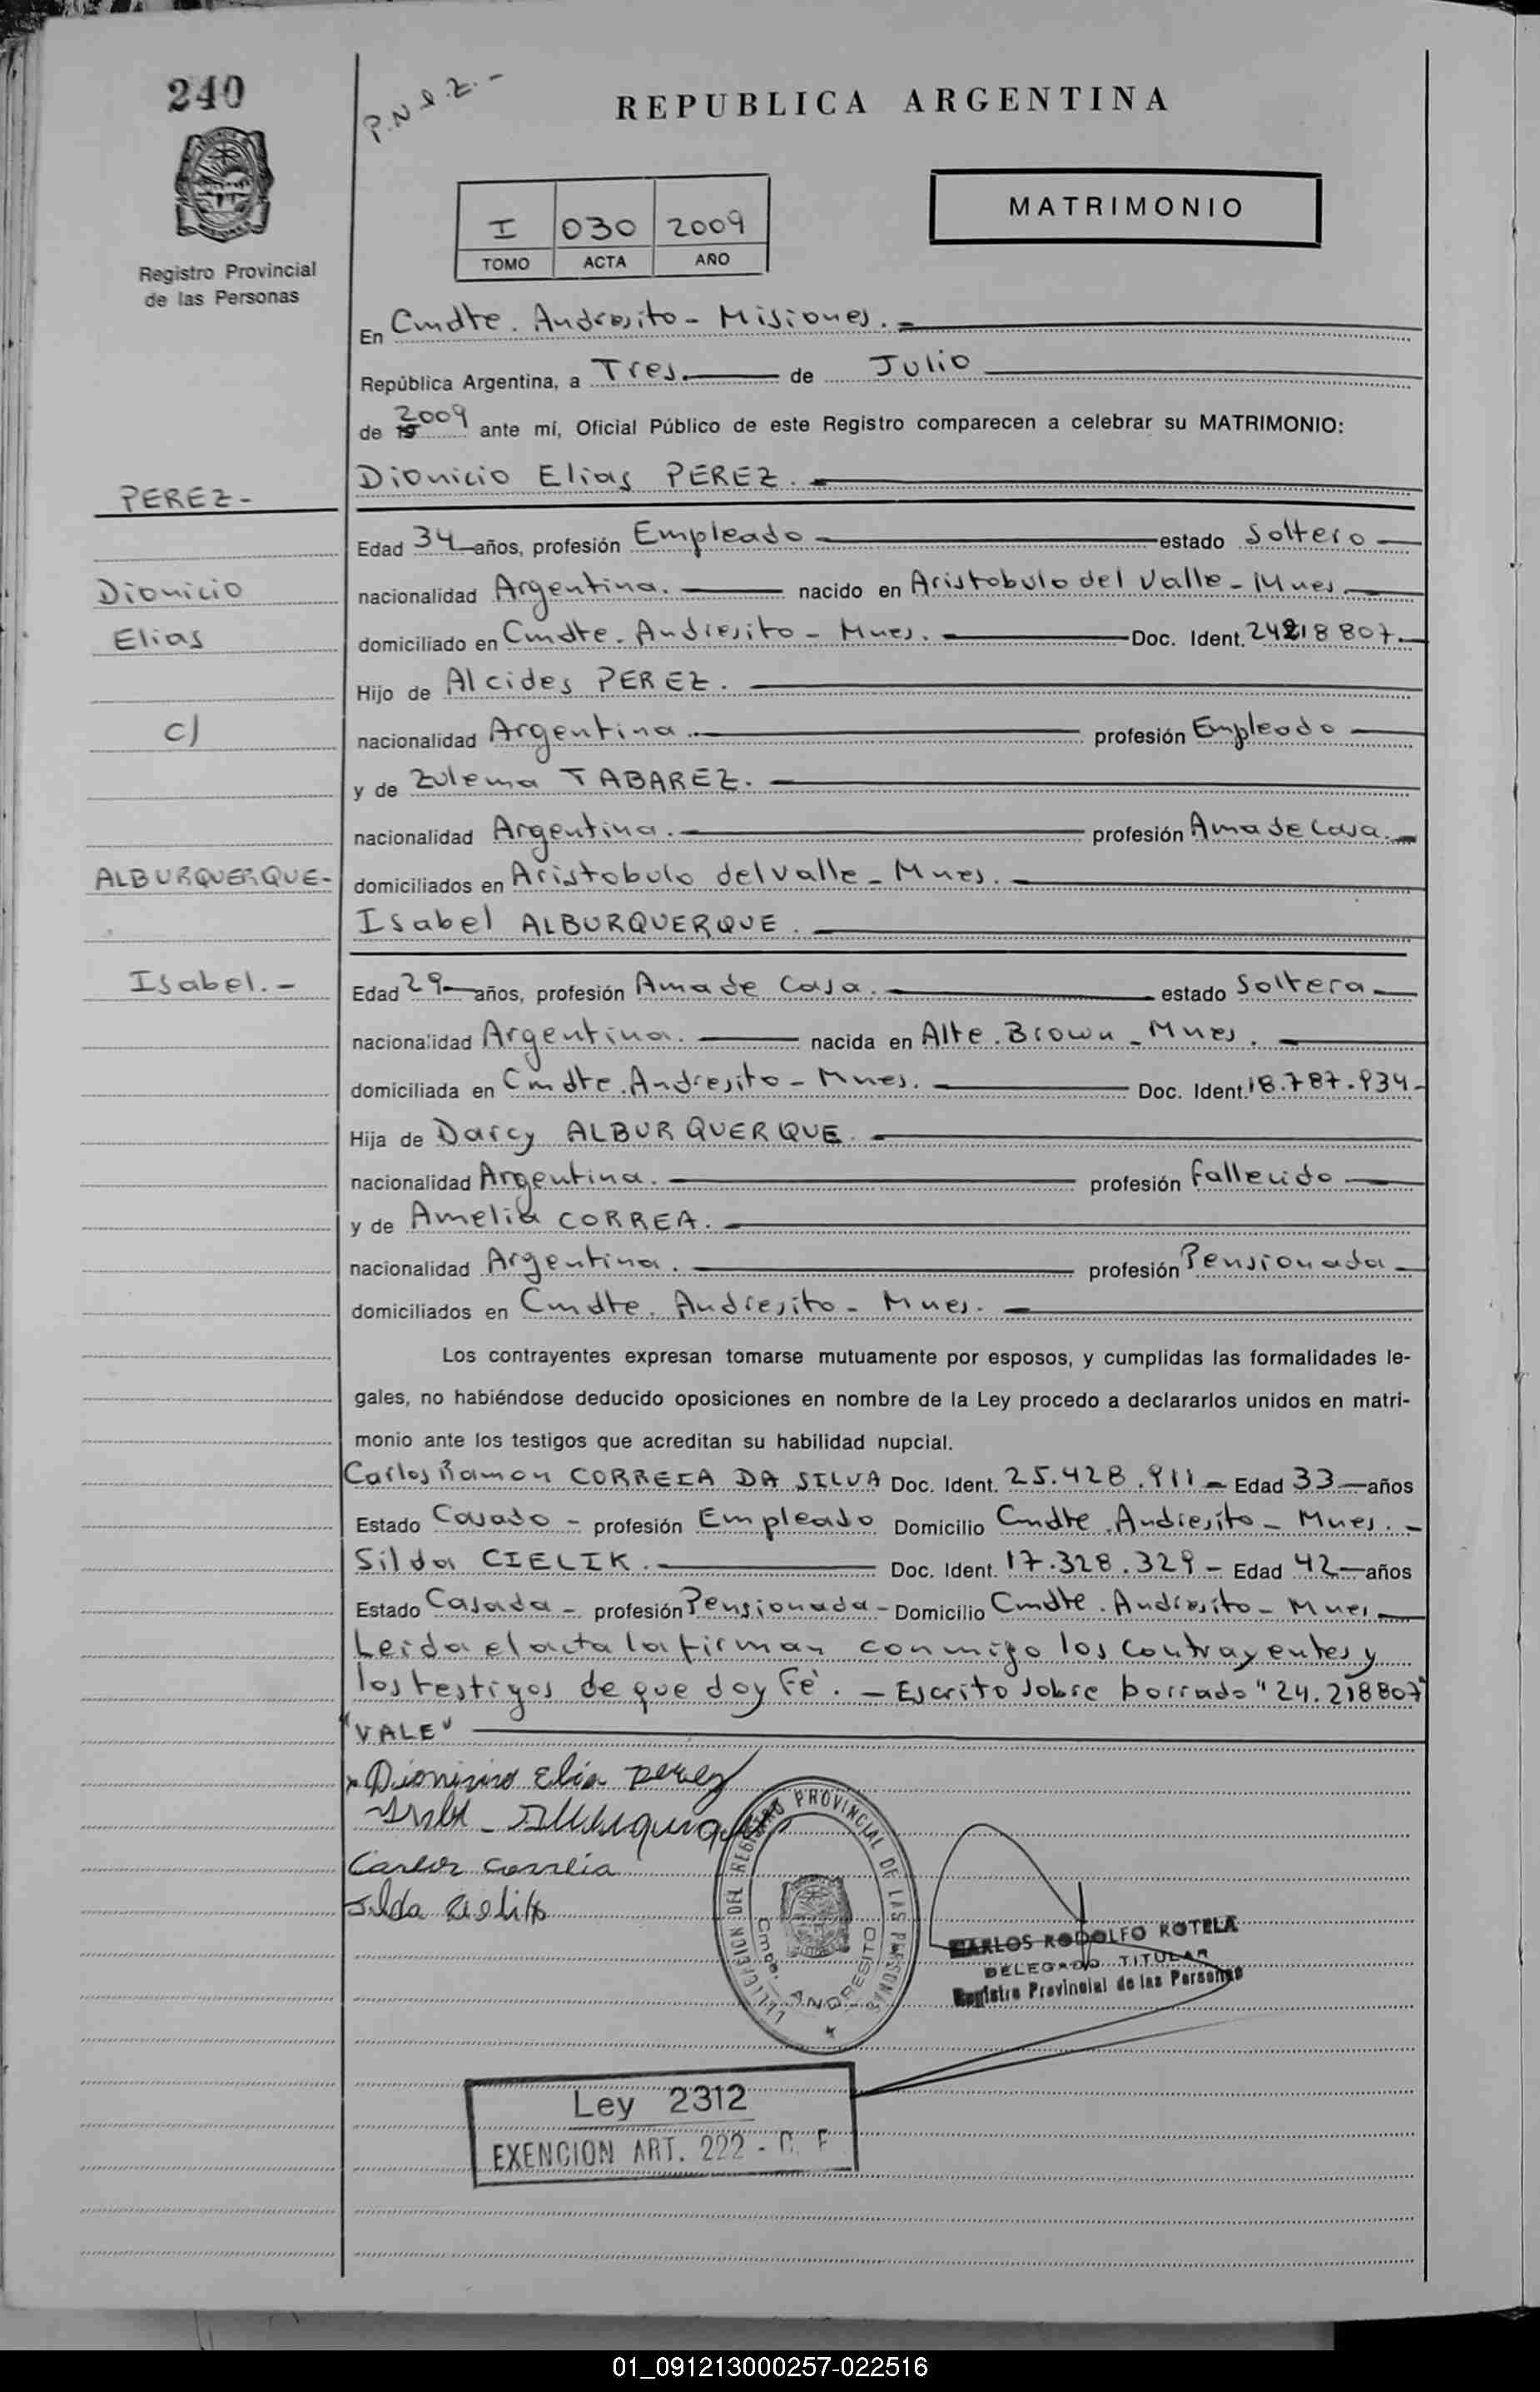 240
P.N.S.Z.-
REPUBLICA ARGENTINA
I 030 2009
TOMO ACTA AÑO
MATRIMONIO
Registro Provincial
de las Personas
En Cmdte. Andresito - Misiones.
República Argentina, a Tres. de Julio
de 2009 ante mí, Oficial Público de este Registro comparecen a celebrar su MATRIMONIO:
Dionicio Elias PEREZ.
PEREZ-
Edad 34 años, profesión Empleado estado Soltero
Dionicio
nacionalidad Argentina. nacido en Aristobulo del Valle - Mnes.
Elias
domiciliado en Cmdte. Andresito - Mnes. Doc. Ident. 24218807.
Hijo de Alcides PEREZ.
c/
nacionalidad Argentina. profesión Empleado
y de Zulema TABAREZ.
nacionalidad Argentina. profesión Ama de Casa.
ALBURQUERQUE-
domiciliados en Aristobulo del Valle - Mnes.
Isabel ALBURQUERQUE.
Isabel.-
Edad 29 años, profesión Ama de Casa. estado Soltera
nacionalidad Argentina. nacida en Alte. Brown - Mnes.
domiciliada en Cmdte. Andresito - Mnes. Doc. Ident. 18.787.934-
Hija de Darcy ALBURQUERQUE.
nacionalidad Argentina. profesión fallecido
y de Amelia CORREA.
nacionalidad Argentina. profesión Pensionada
domiciliados en Cmdte. Andresito - Mnes.
Los contrayentes expresan tomarse mutuamente por esposos, y cumplidas las formalidades le-
gales, no habiéndose deducido oposiciones en nombre de la Ley procedo a declararlos unidos en matri-
monio ante los testigos que acreditan su habilidad nupcial.
Carlos Ramon CORREIA DA SILVA Doc. Ident. 25.428.911 - Edad 33 años
Estado Casado - profesión Empleado Domicilio Cmdte. Andresito - Mnes. -
Silda CIELIK. Doc. Ident. 17.328.329 - Edad 42 años
Estado Casada - profesión Pensionada - Domicilio Cmdte. Andresito - Mnes
Leida el acta la firman conmigo los contrayentes y
los testigos de que doy Fé. - Escrito sobre borrado "24.218807"
"VALE"
Dionisio Elia perez
Carlos Correia
Silda Cielik
REGISTRO PROVINCIAL DE LAS PERSONAS
Cmte. ANDRESITO
CARLOS RODOLFO ROTELA
DELEGADO TITULAR
Registro Provincial de las Personas
Ley 2312
EXENCION ART. 222 - C. F
01_091213000257-022516